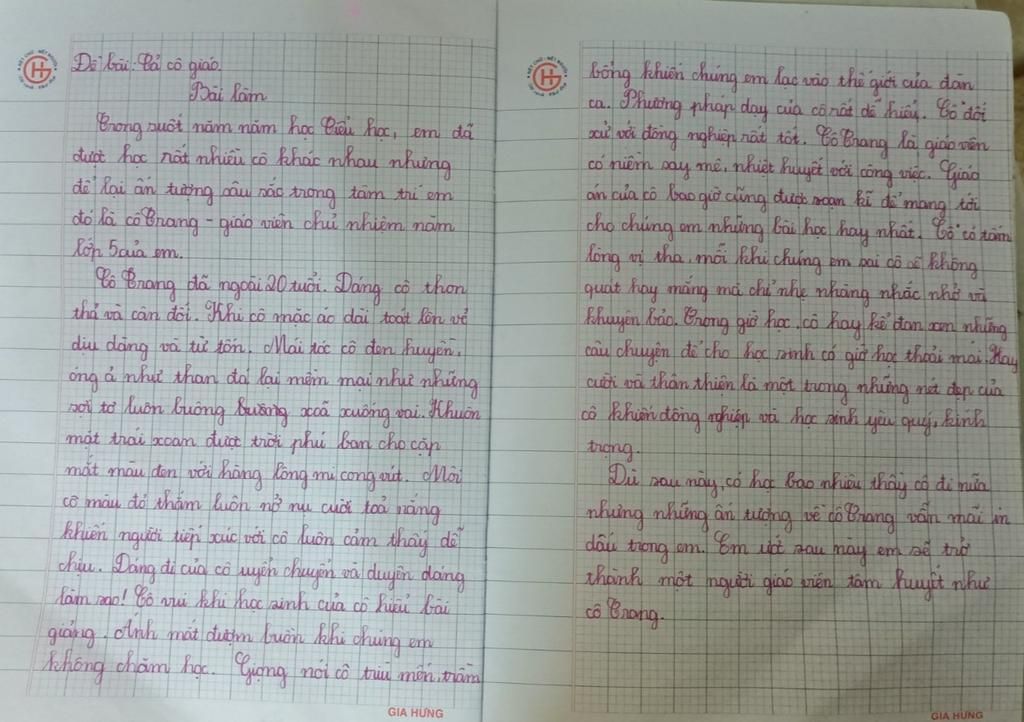 Đề bài: Tả cô giáo.
Bài làm
Trong suốt năm năm học Tiểu học, em đã
được học rất nhiều cô khác nhau nhưng
để lại ấn tượng sâu sắc trong tâm trí em
đó là cô Trang - giáo viên chủ nhiệm năm
lớp 5 của em.
Cô Trang đã ngoài 20 tuổi. Dáng cô thon
thả và cân đối. Khi cô mặc áo dài toát lên vẻ
dịu dàng và từ tốn. Mái tóc cô đen huyền,
óng ả như than đá lại mềm mại như những
sợi tơ luôn buông buông xoã xuống vai. Khuôn
mặt trái xoan được trời phú ban cho cặp
mắt màu đen với hàng lông mi cong vút. Môi
cô màu đỏ thắm luôn nở nụ cười toả nắng
khiến người tiếp xúc với cô luôn cảm thấy dễ
chịu. Dáng đi của cô uyển chuyển và duyên dáng
làm sao! Cô vui khi học sinh của cô hiểu bài
giảng. Ánh mắt đượm buồn khi chúng em
không chăm học. Giọng nói cô trìu mến, trầm
bổng khiến chúng em lạc vào thế giới của dân
ca. Phương pháp dạy của cô rất dễ hiểu. Cô đối
xử với đồng nghiệp rất tốt. Cô Trang là giáo viên
có niềm say mê, nhiệt huyết với công việc. Giáo
án của cô bao giờ cũng được soạn kĩ để mang tới
cho chúng em những bài học hay nhất. Cô có tấm
lòng vị tha, mỗi khi chúng em sai cô sẽ không
quát hay mắng mà chỉ nhẹ nhàng nhắc nhở và
khuyên bảo. Trong giờ học, cô hay kể đan xen những
câu chuyện để cho học sinh có giờ học thoải mái. Hay
cười và thân thiện là một trong những nét đẹp của
cô khiến đồng nghiệp và học sinh yêu quý, kính
trọng.
Dù sau này, có học bao nhiêu thầy cô đi nữa
nhưng những ấn tượng về cô Trang vẫn mãi in
dấu trong em. Em ước sau này em sẽ trở
thành một người giáo viên tâm huyết như
cô Trang.
GIA HƯNG
GIA HƯNG